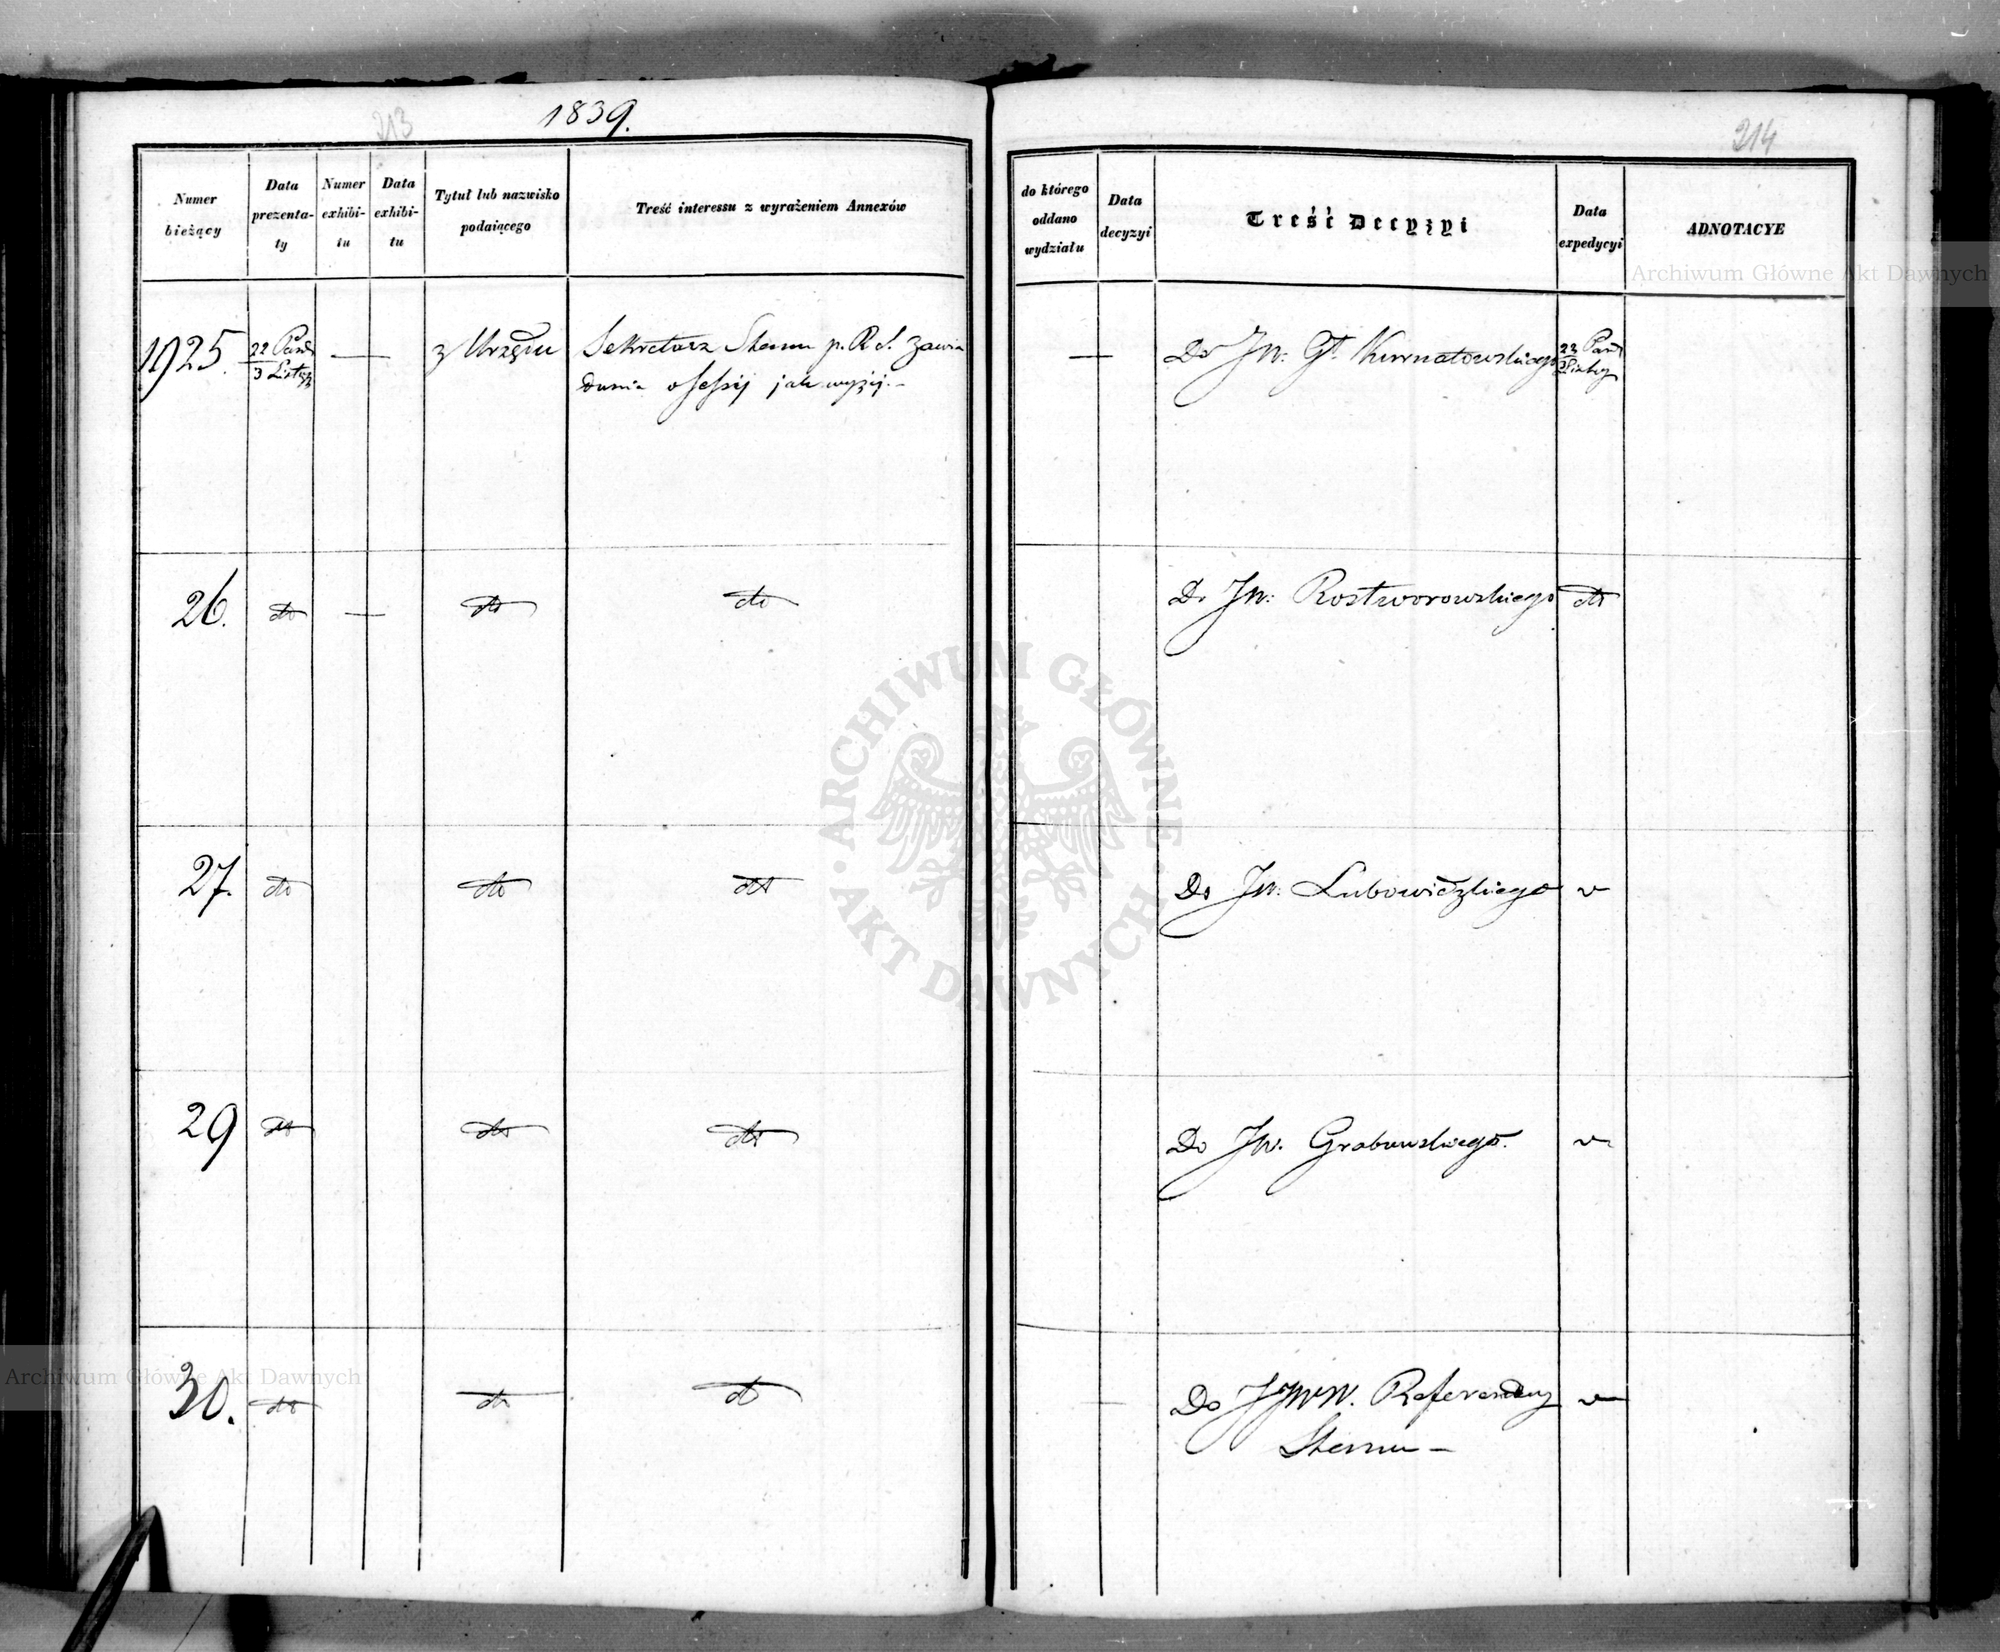 213
1839.
Numer bieżący
Data prezenta-ty
Numer exhibi-tu
Data exhibi-tu
Tytuł lub nazwisko podaiącego
Treść interessu z wyrażeniem Annexów
1925. 22 Paźd — z Urzędu Sekretarz Stanu p. R. S. Zawia
3 Listop damia o Sessij jak wyżej.—
26. dto — dto dto
27. dto dto dto
29 dto dto dto
30. dto dto dto
214
do którego oddano wydziału
Data decyzyi
Treść Decyzyi
Data expedycyi
ADNOTACYE
— Do JW: Gł Kurnatowskiego 23 Paźd
Do JW: Rostworowskiego dto
Do JW: Lubowidzkiego v
Do JW. Grabowskiego. v
Do JJWW. Referendarzy v
Stanu —
ARCHIWUM GŁÓWNE AKT DAWNYCH
Archiwum Główne Akt Dawnych
Archiwum Główne Akt Dawnych